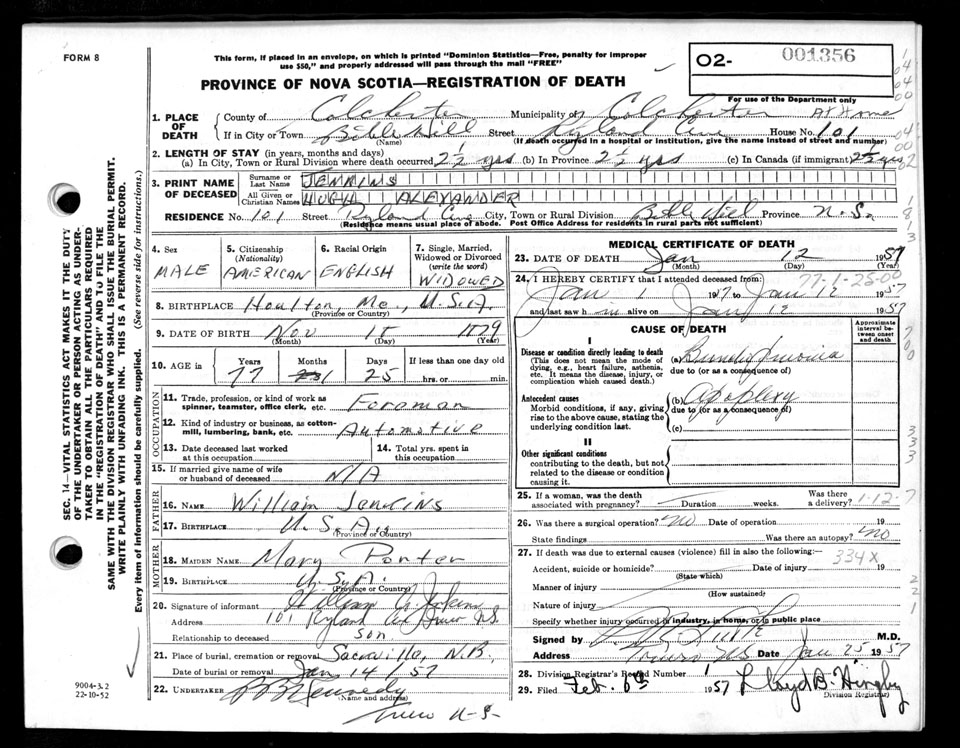 FORM 8
This form, if placed in an envelope, on which is printed "Dominion Statistics—Free, penalty for improper
use $50," and properly addressed will pass through the mail "FREE"
PROVINCE OF NOVA SCOTIA—REGISTRATION OF DEATH
02- 001356
For use of the Department only
1. PLACE OF DEATH
County of Colchester Municipality of Colchester At Home
If in City or Town Bible Hill Street Ryland Ave House No. 101
(Name) (If death occurred in a hospital or institution, give its name instead of street and number)
2. LENGTH OF STAY (in years, months and days)
(a) In City, Town or Rural Division where death occurred 2 1/2 yrs (b) In Province 2 1/2 yrs (c) In Canada (if immigrant) 2 1/2 yrs
3. PRINT NAME OF DECEASED
Surname or Last Name JENKINS
All Given or Christian Names HUGH ALEXANDER
RESIDENCE No. 101 Street Ryland Ave City, Town or Rural Division Bible Hill Province N.S.
(Residence means usual place of abode. Post Office Address for residents in rural parts not sufficient)
4. Sex MALE
5. Citizenship (Nationality) AMERICAN
6. Racial Origin ENGLISH
7. Single, Married, Widowed or Divorced (write the word) WIDOWED
8. BIRTHPLACE Houlton, Me., U.S.A.
(Province or Country)
9. DATE OF BIRTH Nov 18 1879
(Month) (Day) (Year)
10. AGE in Years Months Days If less than one day old
77 1 25 hrs. or min.
OCCUPATION
11. Trade, profession, or kind of work as spinner, teamster, office clerk, etc. Foreman
12. Kind of industry or business, as cotton-mill, lumbering, bank, etc. Automotive
13. Date deceased last worked at this occupation
14. Total yrs. spent in this occupation
15. If married give name of wife or husband of deceased N/A
FATHER
16. NAME William Jenkins
17. BIRTHPLACE U.S.A.
(Province or Country)
MOTHER
18. MAIDEN NAME Mary Porter
19. BIRTHPLACE U.S.A.
(Province or Country)
20. Signature of informant
Address 101 Ryland Ave Truro N.S.
Relationship to deceased son
21. Place of burial, cremation or removal Sackville, N.B.
Date of burial or removal Jan 14 / 57
22. UNDERTAKER Kennedy
(Name and address)
Truro N-S-
MEDICAL CERTIFICATE OF DEATH
23. DATE OF DEATH Jan 12 1957
(Month) (Day) (Year)
77-1-25-00
24. I HEREBY CERTIFY that I attended deceased from:
Jan 1 1957 to Jan 12 1957
and last saw him alive on Jan 12 1957
CAUSE OF DEATH
Approximate interval between onset and death
I
Disease or condition directly leading to death (a)
(This does not mean the mode of dying, e.g., heart failure, asthenia, etc. It means the disease, injury, or complication which caused death.)
due to (or as a consequence of)
Antecedent causes (b) Apoplexy
Morbid conditions, if any, giving rise to the above cause, stating the underlying condition last.
due to (or as a consequence of)
(c)
II
Other significant conditions
contributing to the death, but not related to the disease or condition causing it.
25. If a woman, was the death associated with pregnancy? Duration weeks. Was there a delivery? 1-12-7
26. Was there a surgical operation? no Date of operation 19
State findings Was there an autopsy? no
27. If death was due to external causes (violence) fill in also the following:— 334X
Accident, suicide or homicide? Date of injury 19
(State which)
Manner of injury
(How sustained)
Nature of injury
Specify whether injury occurred in industry, in home, or in public place
Signed by M.D.
Address Truro NS Date Jan 25 1957
28. Division Registrar's Record Number 1
29. Filed Feb. 6th 1957 Lloyd B.
Division Registrar)
SEC. 14—VITAL STATISTICS ACT MAKES IT THE DUTY
OF THE UNDERTAKER OR PERSON ACTING AS UNDER-
TAKER TO OBTAIN ALL THE PARTICULARS REQUIRED
IN THE "REGISTRATION OF DEATH" AND TO FILE THE
SAME WITH THE DIVISION REGISTRAR WHO SHALL ISSUE THE BURIAL PERMIT.
WRITE PLAINLY WITH UNFADING INK. THIS IS A PERMANENT RECORD.
Every item of information should be carefully supplied. (See reverse side for instructions.)
9004-3.2
22-10-52